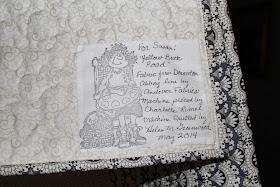 For Sarah!
Yellow Brick
Road
Fabric from Downton
Abbey line by
Andover Fabrics
Machine pieced by
Charlotte
Machine Quilted by
Helen M
May 2014